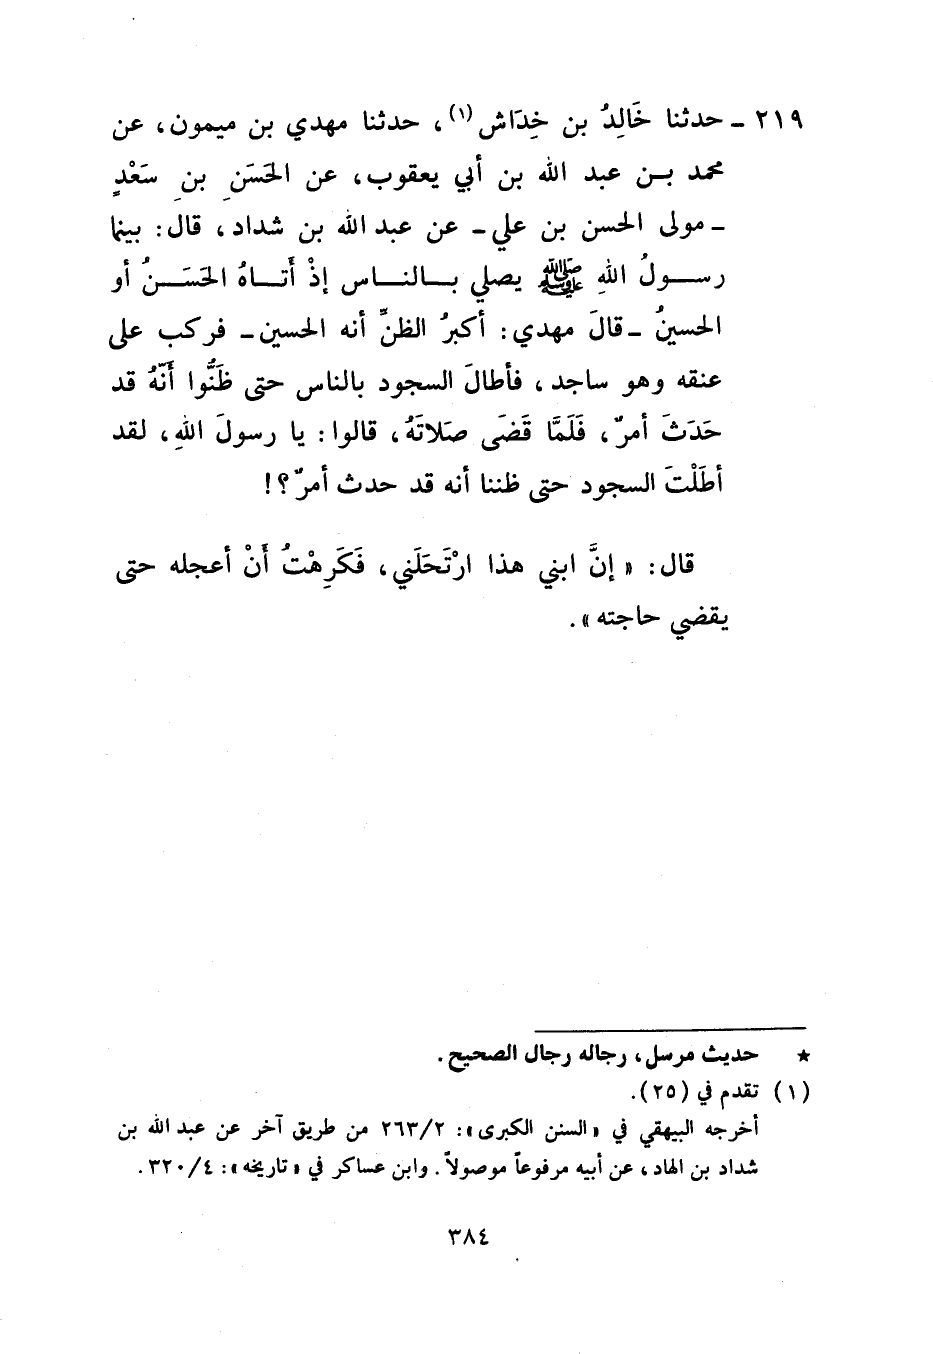 ٢١٩ ـ حدثنا خَالِدُ بن خِدَاش(١)، حدثنا مهدي بن ميمون، عن
محمد بن عبد الله بن أبي يعقوب، عن الحَسَنِ بنِ سَعْدٍ
ـ مولى الحسن بن علي ـ عن عبد الله بن شداد، قال: بينما
رسولُ اللهِ ﷺ يصلي بالناس إذْ أَتَاهُ الحَسَنُ أو
الحسينُ ـ قالَ مهدي: أكبرُ الظنِّ أنه الحسين ـ فركب على
عنقه وهو ساجد، فأطالَ السجود بالناس حتى ظَنُّوا أَنَّهُ قد
حَدَثَ أمرٌ، فَلَمَّا قَضَى صَلاتَهُ، قالوا: يا رسولَ اللهِ، لقد
أطَلْتَ السجود حتى ظننا أنه قد حدث أمرٌ؟!
قال: « إنَّ ابني هذا ارْتَحَلَني، فَكَرِهْتُ أَنْ أعجله حتى
يقضي حاجته ».
★ حديث مرسل، رجاله رجال الصحيح.
(١) تقدم في (٢٥).
أخرجه البيهقي في «السنن الكبرى»: ٢٦٣/٢ من طريق آخر عن عبد الله بن
شداد بن الهاد، عن أبيه مرفوعاً موصولاً. وابن عساكر في «تاريخه»: ٣٢٠/٤.
٣٨٤